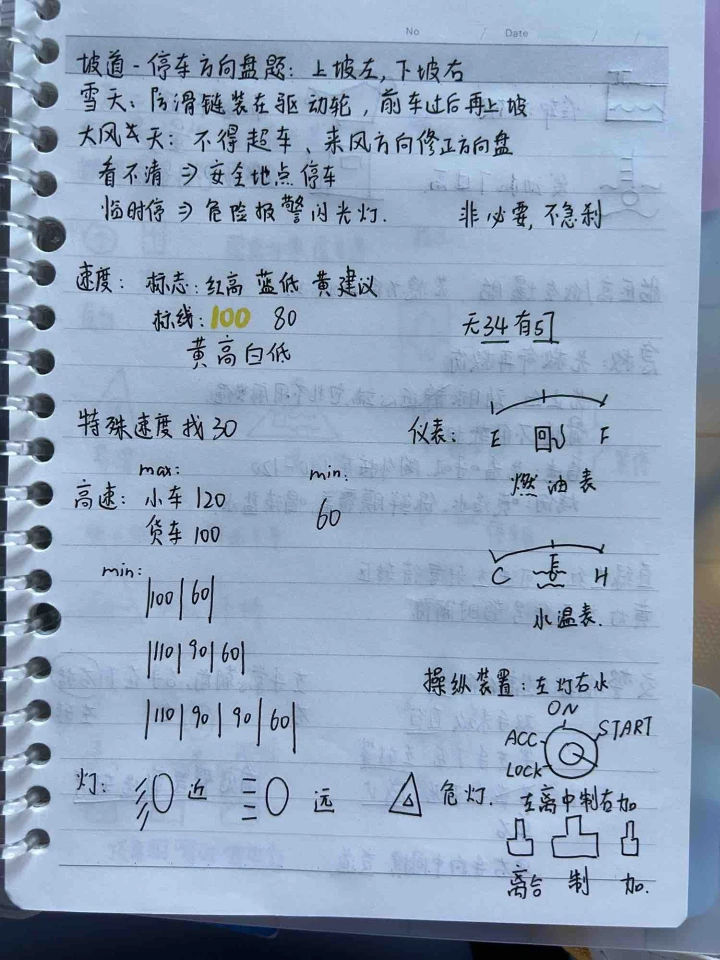 No / Date / /
坡道-停车方向盘题：上坡左，下坡右
雪天：防滑链装在驱动轮，前车过后再上坡
大风天：不得超车、来风方向修正方向盘
看不清⇒安全地点停车
临时停⇒危险报警闪光灯. 非必要，不急刹
速度：标志：红高 蓝低 黄建议
标线：100 80 无34有57
黄高白低
特殊速度找30 仪表：E F
燃油表
max: min:
高速：小车120 60
货车100
C H
min: |100|60|
水温表.
|110|90|60|
操纵装置：左灯右水
|110|90|90|60|
ON
ACC START
LOCK
灯： 近 远 危灯.
左离中制右加
离合 制 加.